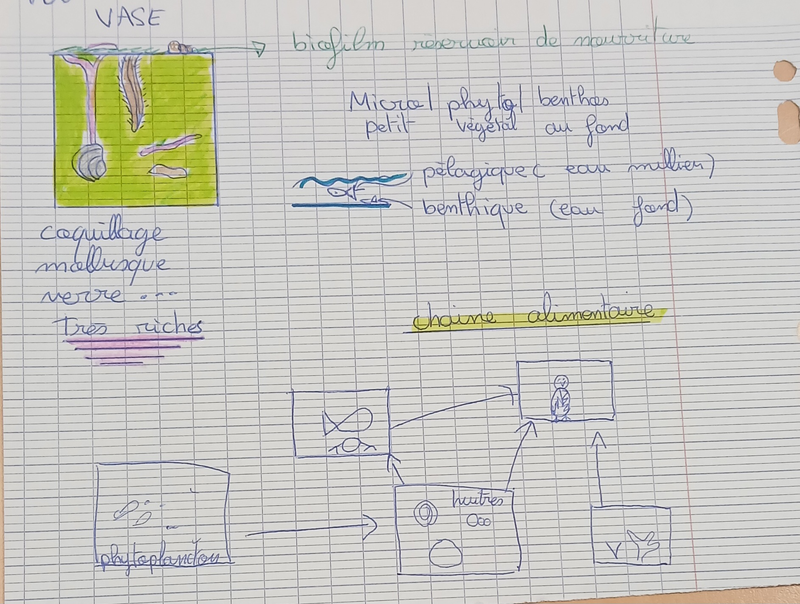 VASE
biofilm réservoir de nourriture
Micro/ phyto/ benthos
petit végétal au fond
pélagique (eau millieu)
benthique (eau fond)
coquillage
mollusque
verre ....
Très riches
chaine alimentaire
huitres
phytoplancton